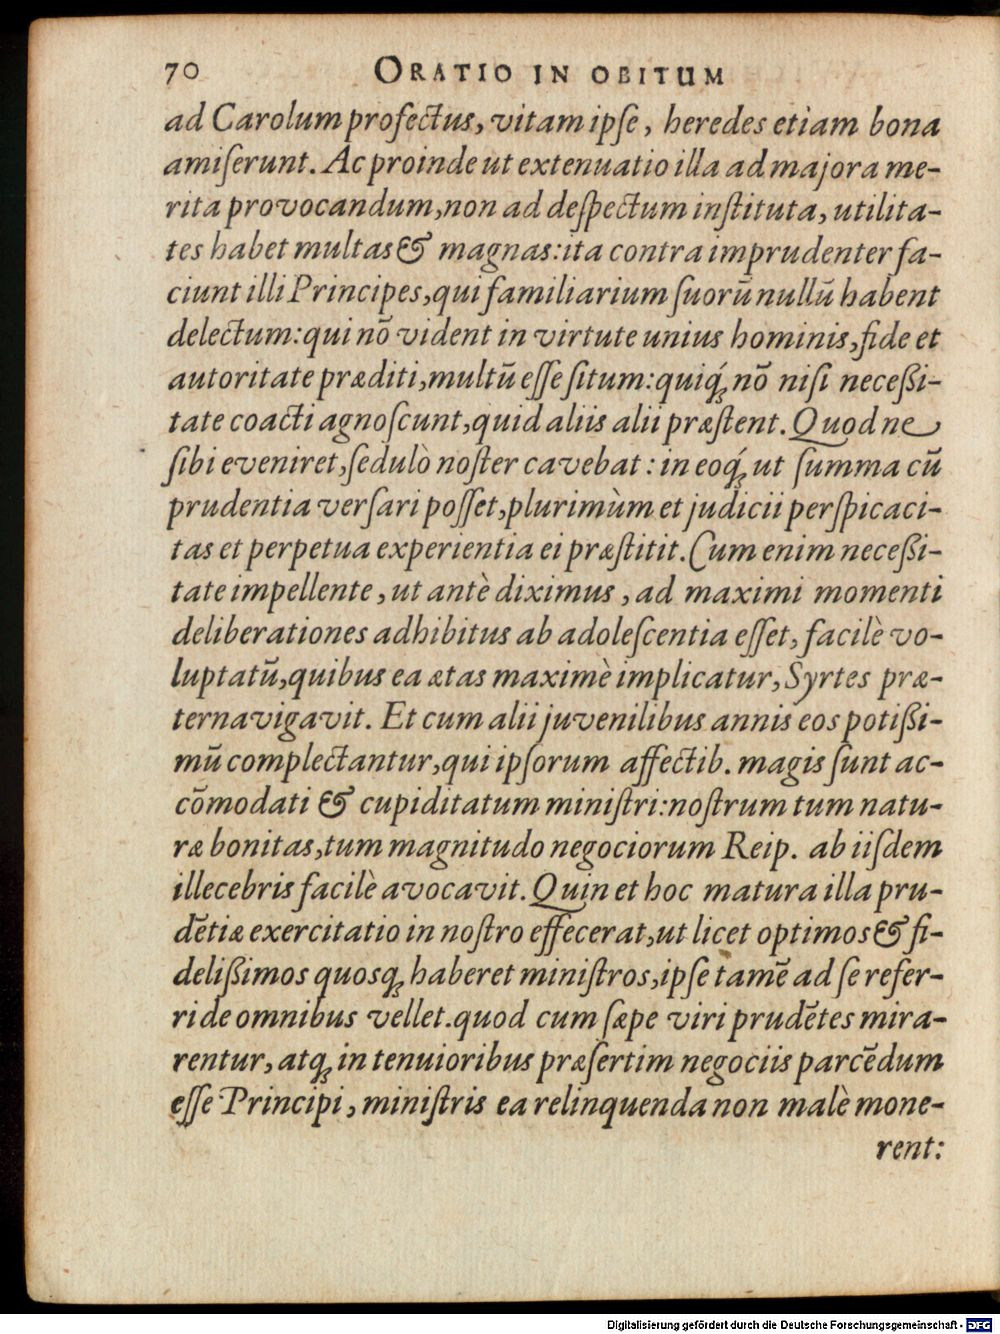 70 ORATIO IN OBITUM
ad Carolum profectus, vitam ipſe, heredes etiam bona
amiſerunt. Ac proinde ut extenuatio illa ad majora me-
rita provocandum, non ad deſpectum inſtituta, utilita-
tes habet multas & magnas: ita contra imprudenter fa-
ciunt illi Principes, qui familiarium ſuorū nullū habent
delectum: qui nō vident in virtute unius hominis, fide et
autoritate præditi, multū eſſe ſitum: quiq́; nō niſi neceßi-
tate coacti agnoſcunt, quid aliis alii præſtent. Quod ne
ſibi eveniret, ſedulò noſter cavebat: in eoq́; ut ſumma cū
prudentia verſari poſſet, plurimùm et judicii perſpicaci-
tas et perpetua experientia ei præſtitit. Cum enim neceßi-
tate impellente, ut antè diximus, ad maximi momenti
deliberationes adhibitus ab adoleſcentia eſſet, facilè vo-
luptatū, quibus ea ætas maximè implicatur, Syrtes præ-
ternavigavit. Et cum alii juvenilibus annis eos potißi-
mū complectantur, qui ipſorum affectib. magis ſunt ac-
cōmodati & cupiditatum miniſtri: noſtrum tum natu-
ræ bonitas, tum magnitudo negociorum Reip. ab iiſdem
illecebris facilè avocavit. Quin et hoc matura illa pru-
dētiæ exercitatio in noſtro effecerat, ut licet optimos & fi-
delißimos quosq; haberet miniſtros, ipſe tamē ad ſe refer-
ri de omnibus vellet. quod cum ſæpe viri prudētes mira-
rentur, atq; in tenuioribus præſertim negociis parcēdum
eſſe Principi, miniſtris ea relinquenda non malè mone-
rent:
Digitalisierung gefördert durch die Deutsche Forschungsgemeinschaft - DFG